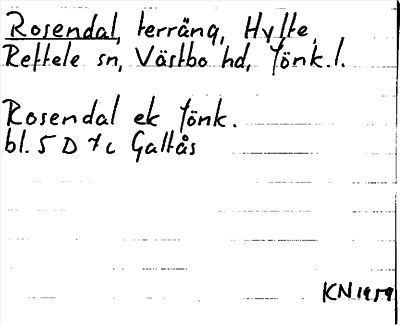 Rosendal, terräng, Hylte,
Reftele sn, Västbo hd, Jönk.l.
Rosendal ek Jönk.
bl. 5 D 7 c Gallås
KN 1959